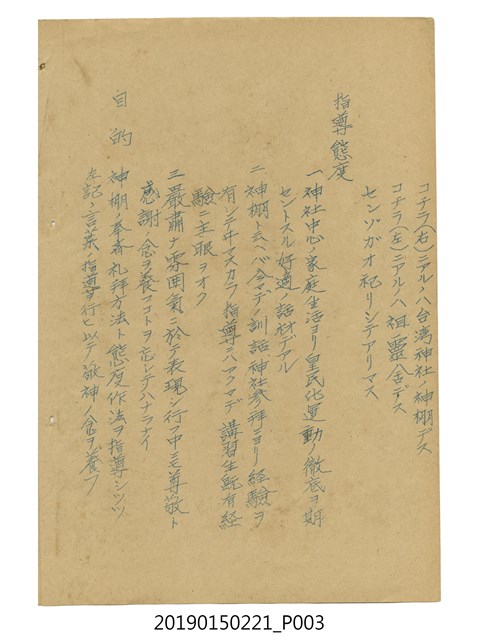 コチラ(右)ニアルノハ台湾神社ノ神棚デス
コチラ(左)ニアルノハ祖霊舎デス
センゾガオ祀リシテアリマス
指導態度
一 神社中心ノ家庭生活ヨリ皇民化運動ノ徹底ヲ期
セントスル好適ノ話材デアル
二 神棚ト云ヘバ今マデノ訓話、神社参拝ヨリ経験ヲ
有シテヰマスカラ指導ニハアクマデ講習生既有経
験ニ主眼ヲオク
三 厳粛ナ雰囲氣ニ於テ表現シ行フ中ニモ尊敬ト
感謝ノ念ヲ養フコトヲ忘レテハナラナイ
目的
神棚ノ奉斎礼拜方法ト態度作法ヲ指導シツツ
左記ノ言葉ノ指導ヲ行ヒ以テ敬神ノ念ヲ養フ
20190150221_P003